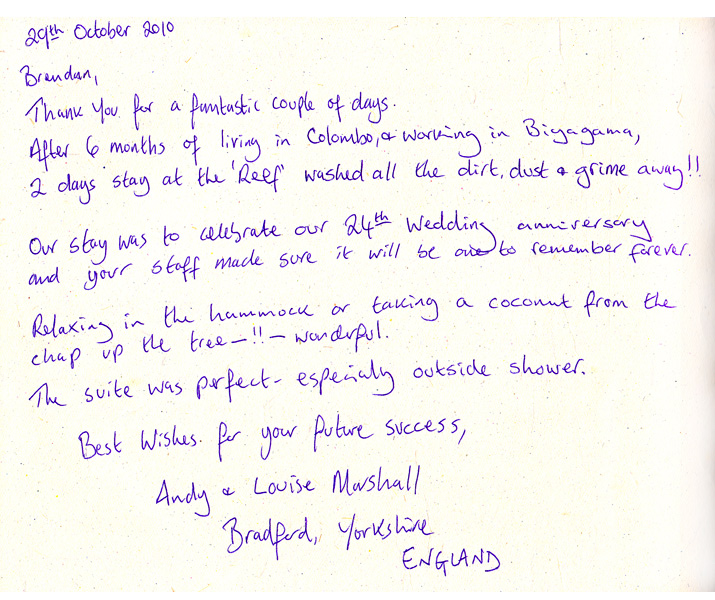 29th October 2010
Brendan,
Thank You for a fantastic couple of days.
After 6 months of living in Colombo, & working in Biyagama,
2 days stay at the 'Reef' washed all the dirt, dust & grime away!!
Our stay was to celebrate our 24th Wedding anniversary
and your staff made sure it will be one to remember forever.
Relaxing in the hammock or taking a coconut from the
chap up the tree - !! - wonderful.
The suite was perfect - especially outside shower.
Best Wishes. for your future success,
Andy & Louise Marshall
Bradford, Yorkshire
ENGLAND